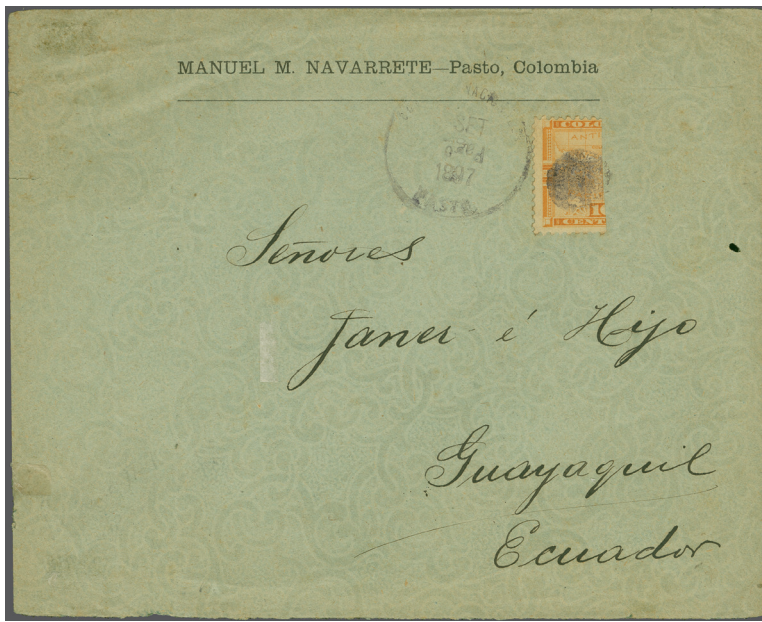 MANUEL M. NAVARRETE—Pasto, Colombia
SET
1897
PASTO
COLO
10
CENT
Señores
Janer é Hijo
Guayaquil
Ecuador